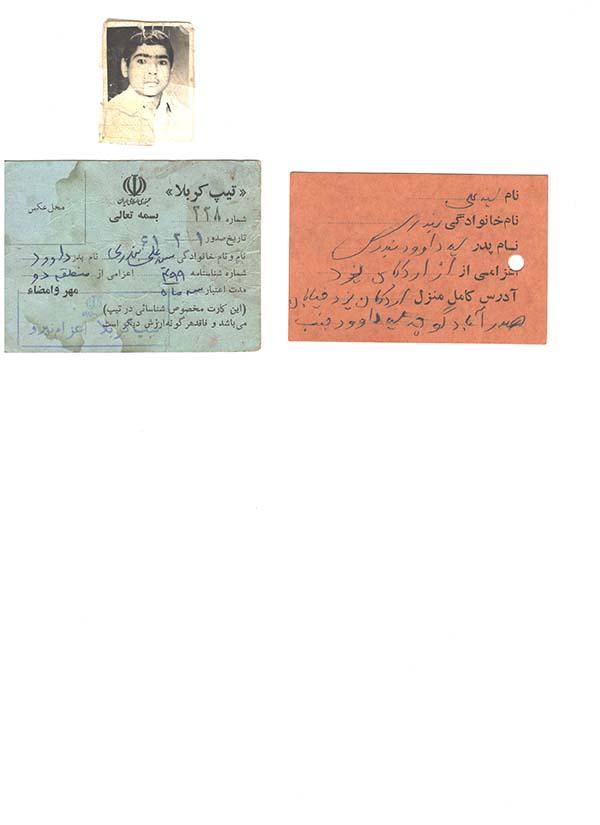 «تیپ کربلا»
جمهوری اسلامی ایران
بسمه تعالی
محل عکس
شماره ۲۲۸
تاریخ صدور
نام و نام خانوادگی سیدعلی نام پدر داوود
شماره شناسنامه اعزامی از منطقه دو
مدت اعتبار سه ماه مهر و امضاء
(این کارت مخصوص شناسائی در تیپ
می‌باشد و فاقد هر گونه ارزش دیگر است)
تیپ کربلا اعزام نیرو
نام سید علی
نام خانوادگی
نام پدر سید داوود
اعزامی از اردکان یزد
آدرس کامل منزل اردکان یزد خیابان
کوچه سید داوود جنب